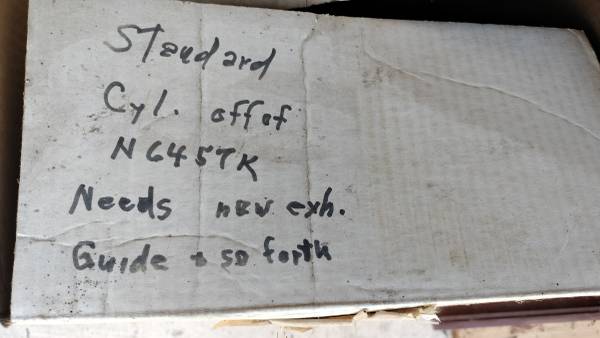 Standard
Cyl. off of
N6457K
Needs new exh.
Guide & so forth